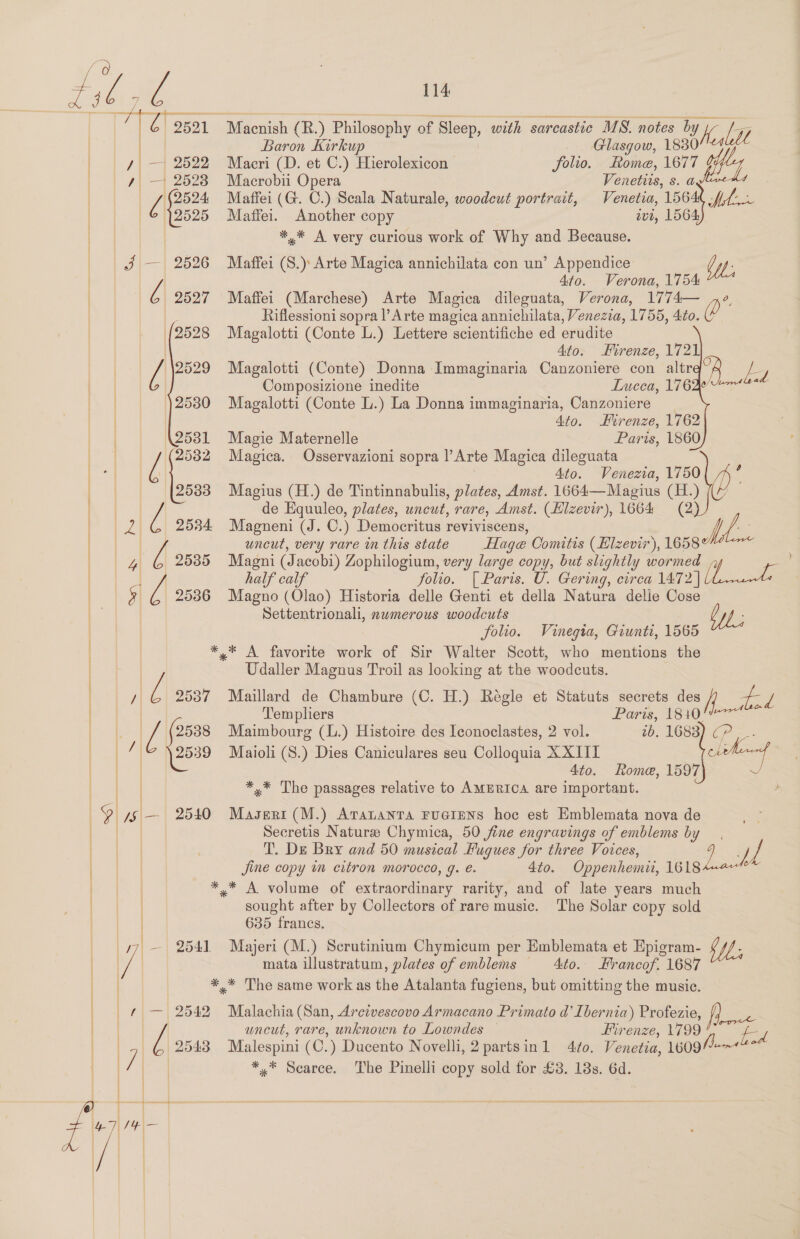 114
2521 Macnish (R.) Philosophy of Sleep, with sarcastic MS. notes by
Baron Kirkup Glasgow, 1830
2522 Macri (D. et C.) Hierolexicon folio. Rome, 1677
2523 Macrobii Opera Venetiis, s. a.
2524 Maffei (G. C.) Scala Naturale, woodcut portrait, Venetia, 1564
2525 Maffei. Another copy ivi, 1564
*** A very curious work of Why and Because.
2526 Maffei (S.) Arte Magica annichilata con un' Appendice
4to. Verona, 1754
2527 Maffei (Marchese) Arte Magica dileguata, Verona, 1774—
Riflessioni sopra l'Arte magica annichilata, Venezia, 1755, 4to.
2528 Magalotti (Conte L.) Lettere scientifiche ed erudite
4to. Firenze, 1721
2529 Magalotti (Conte) Donna Immaginaria Canzoniere con altre
Composizione inedite Lucca, 1762
2530 Magalotti (Conte L.) La Donna immaginaria, Canzoniere
4to. Firenze, 1762
2531 Magie Maternelle Paris, 1860
2532 Magica. Osservazioni sopra l'Arte Magica dileguata
4to. Venezia, 1750
2533 Magius (H.) de Tintinnabulis, plates, Amst. 1664—Magius (H.)
de Equuleo, plates, uncut, rare, Amst. (Elzevir), 1664 (2)
2534 Magneni (J. C.) Democritus reviviscens,
uncut, very rare in this state Hagæ Comitis (Elzevir), 1658
2535 Magni (Jacobi) Zophilogium, very large copy, but slightly wormed
half calf folio. [Paris. U. Gering, circa 1472]
2536 Magno (Olao) Historia delle Genti et della Natura delie Cose
Settentrionali, numerous woodcuts
folio. Vinegia, Giunti, 1565
*** A favorite work of Sir Walter Scott, who mentions the
Udaller Magnus Troil as looking at the woodcuts.
2537 Maillard de Chambure (C. H.) Règle et Statuts secrets des
Templiers Paris, 1840
2538 Maimbourg (L.) Histoire des Iconoclastes, 2 vol. ib. 1683
2539 Maioli (S.) Dies Caniculares seu Colloquia XXIII
4to. Romæ, 1597
*** The passages relative to AMERICA are important.
2540 MAJERI (M.) ATALANTA FUGIENS hoc est Emblemata nova de
Secretis Naturæ Chymica, 50 fine engravings of emblems by
T. DE BRY and 50 musical Fugues for three Voices,
fine copy in citron morocco, g. e. 4to. Oppenhemii, 1618
*** A volume of extraordinary rarity, and of late years much
sought after by Collectors of rare music. The Solar copy sold
635 francs.
2541 Majeri (M.) Scrutinium Chymicum per Emblemata et Epigram-
mata illustratum, plates of emblems 4to. Francof. 1687
*** The same work as the Atalanta fugiens, but omitting the music.
2542 Malachia (San, Arcivescovo Armacano Primato d'Ibernia) Profezie,
uncut, rare, unknown to Lowndes Firenze, 1799
2543 Malespini (C.) Ducento Novelli, 2 parts in 1 4to. Venetia, 1609
*** Scarce. The Pinelli copy sold for £3. 13s. 6d.